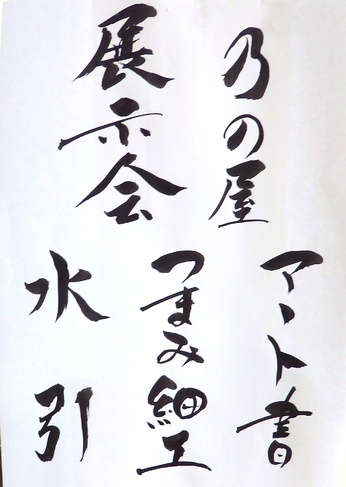 乃の屋
展示会
アート書
つまみ細工
水引